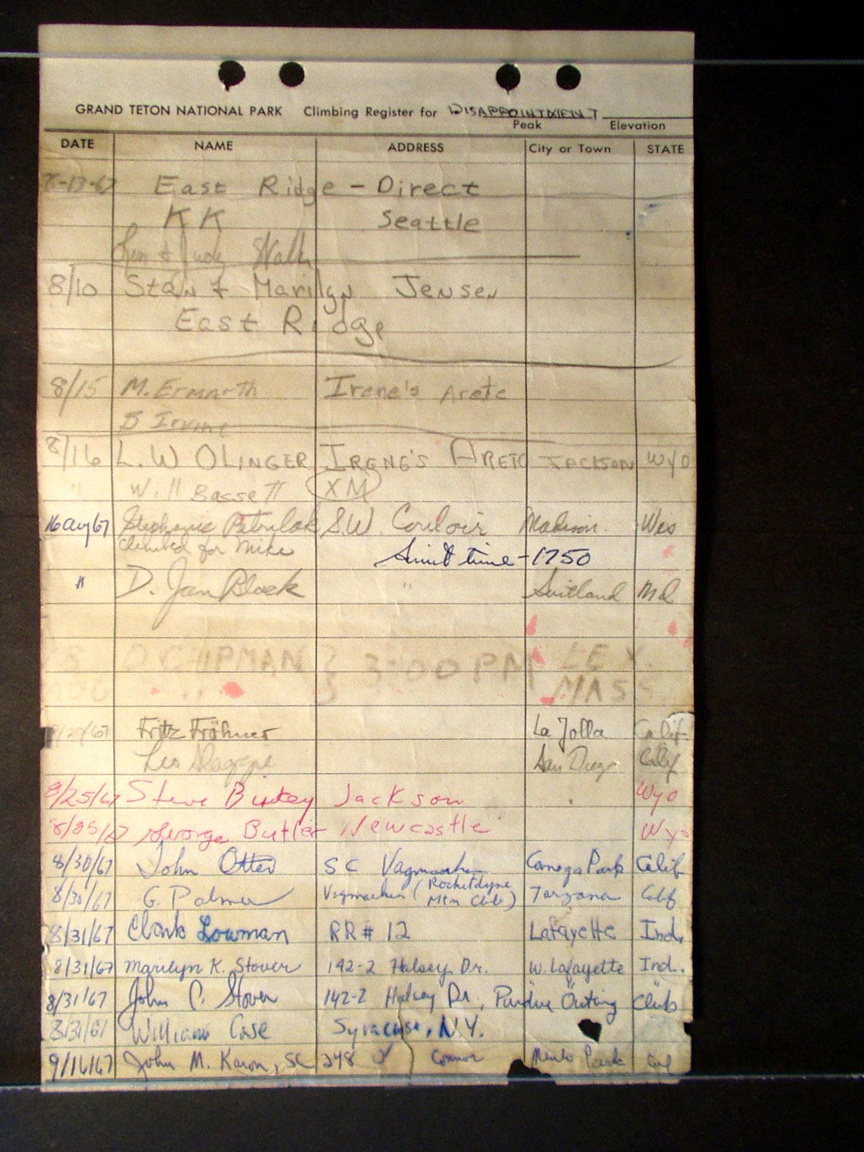 GRAND TETON NATIONAL PARK Climbing Register for DISAPPOINTMENT
Peak Elevation
DATE NAME ADDRESS City or Town STATE
8-13-67 East Ridge - Direct
KK Seattle
Judy
8/10 Stan & Marilyn Jensen
East Ridge
8/15 M. Ermarth Irene's Arete
Irvine
8/16 L.W OLINGER IRENE'S ARETE JACKSON WYO
" Will Bassett XM
16 Aug 67 Stephanie Petrilak S.W. Couloir Madison. Wis
climbed for Mike time - 1750
" D. Jan Black " Suitland Md
28 D CHIPMAN } 3:00 PM LEX.
AUG " " } MASS
8/29/67 Fritz Fröhner La Jolla Calif
Leo San Diego Calif
8/25/67 Steve Jackson Wyo
8/25/67 George Butler Newcastle Wyo
8/30/67 John Otter SC Canoga Park Calif
8/30/67 G. Palmer (Rocketdyne Tarzana Calif
Mtn Club)
8/31/67 Clark Lowman RR# 12 Lafayette Ind.
8/31/67 Marilyn K. Stover 142-2 Halsey Dr. W. Lafayette Ind.
8/31/67 John C. Stover 142-2 Halsey Dr., Purdue "Outing Club"
8/31/67 William Case Syracuse, N.Y.
9/16/67 John M. Karon, SC 248 O'Connor Menlo Park Cal